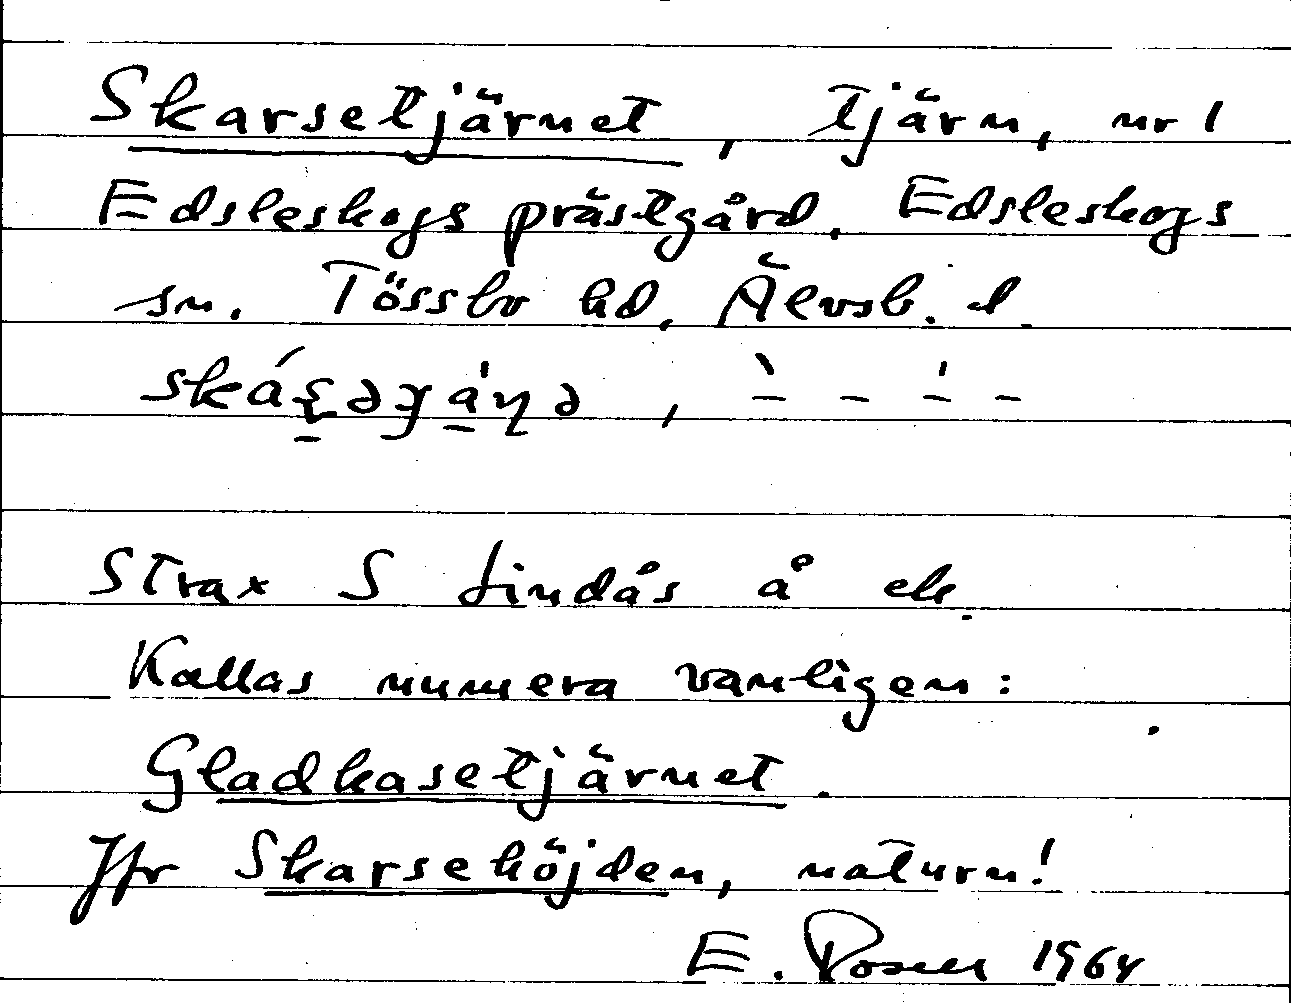 Skarsetjärnet, tjärn, nr 1
Edsleskogs prästgård, Edsleskogs
sn. Tössbo hd, Älvsb. l.
Strax S Lindås å ek.
Kallas numera vanligen:
Gladkasetjärnet.
Jfr Skarsehöjden, naturn!
E. 1964